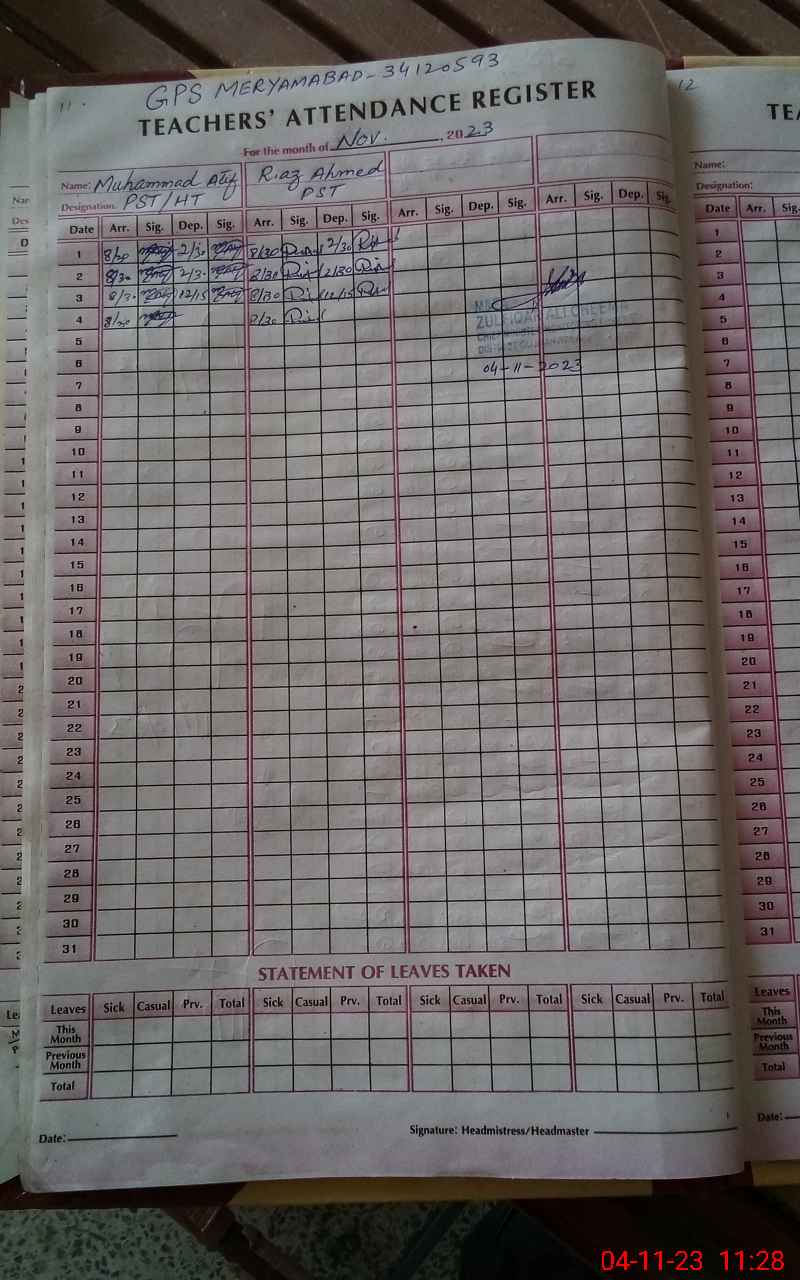 11
GPS MERYAMABAD - 34120593
TEACHERS' ATTENDANCE REGISTER
For the month of Nov. , 2023
Name: Muhammad Atif Riaz Ahmed
Designation. PST/HT PST
Date Arr. Sig. Dep. Sig. Arr. Sig. Dep. Sig. Arr. Sig. Dep. Sig. Arr. Sig. Dep. Sig.
1 8/30 2/30 8/30 2/30
2 8/30 2/30 8/30 2/30
3 8/30 12/15 8/30 12/15
4 8/30 8/30
ZULFIQAR ALI CHEEMA
5
6
04-11-2023
7
8
9
10
11
12
13
14
15
16
17
18
19
20
21
22
23
24
25
26
27
28
29
30
31
STATEMENT OF LEAVES TAKEN
Leaves Sick Casual Prv. Total Sick Casual Prv. Total Sick Casual Prv. Total Sick Casual Prv. Total
This Month
Previous Month
Total
Date:
Signature: Headmistress/Headmaster
12
TEA
Name:
Designation:
Date Arr. Sig.
1
2
3
4
5
6
7
8
9
10
11
12
13
14
15
16
17
18
19
20
21
22
23
24
25
26
27
28
29
30
31
Leaves Sick
This Month
Previous Month
Total
Date:
04-11-23 11:28